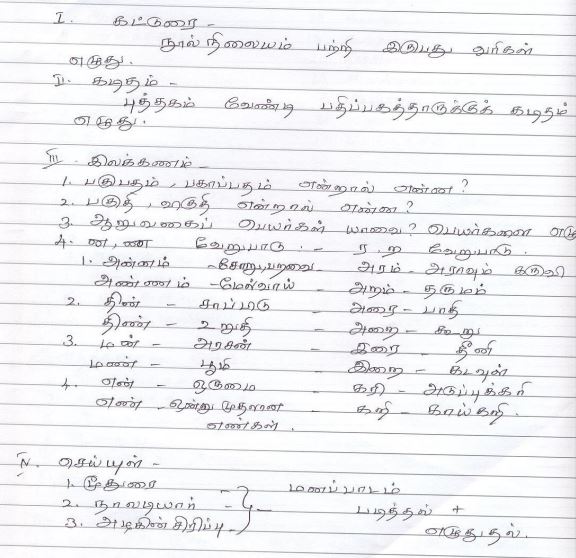 I. கட்டுரை -
நூல் நிலையம் பற்றி இருபது வரிகள்
எழுது.
II. கடிதம் -
புத்தகம் வேண்டி பதிப்பகத்தாருக்குக் கடிதம்
எழுது.
III. இலக்கணம் -
1. பகுபதம், பகாப்பதம் என்றால் என்ன?
2. பகுதி, விகுதி என்றால் என்ன?
3. ஆறுவகைப் பெயர்கள் யாவை? பெயர்களை எழு
4. ன, ண வேறுபாடு. - ர, ற வேறுபாடு.
1. அன்னம் - சோறு, பறவை - அரம் - அராவும் கருவி
அண்ணம் - மேல்வாய் - அறம் - தருமம்
2. தின் - சாப்பிடு - அரை - பாதி
திண் - உறுதி - அறை - கூறு
3. மன் - அரசன் - இரை - தீனி
மண் - பூமி - இறை - கடவுள்
4. என் - ஒருமை - கரி - அடுப்புக்கரி
எண் - ஒன்று முதலான - கறி - காய்கறி.
எண்கள்.
IV. செய்யுள் -
1. மூதுரை - மனப்பாடம்
2. நாலடியார் - படித்தல் +
3. அழகின் சிரிப்பு - எழுதுதல்.